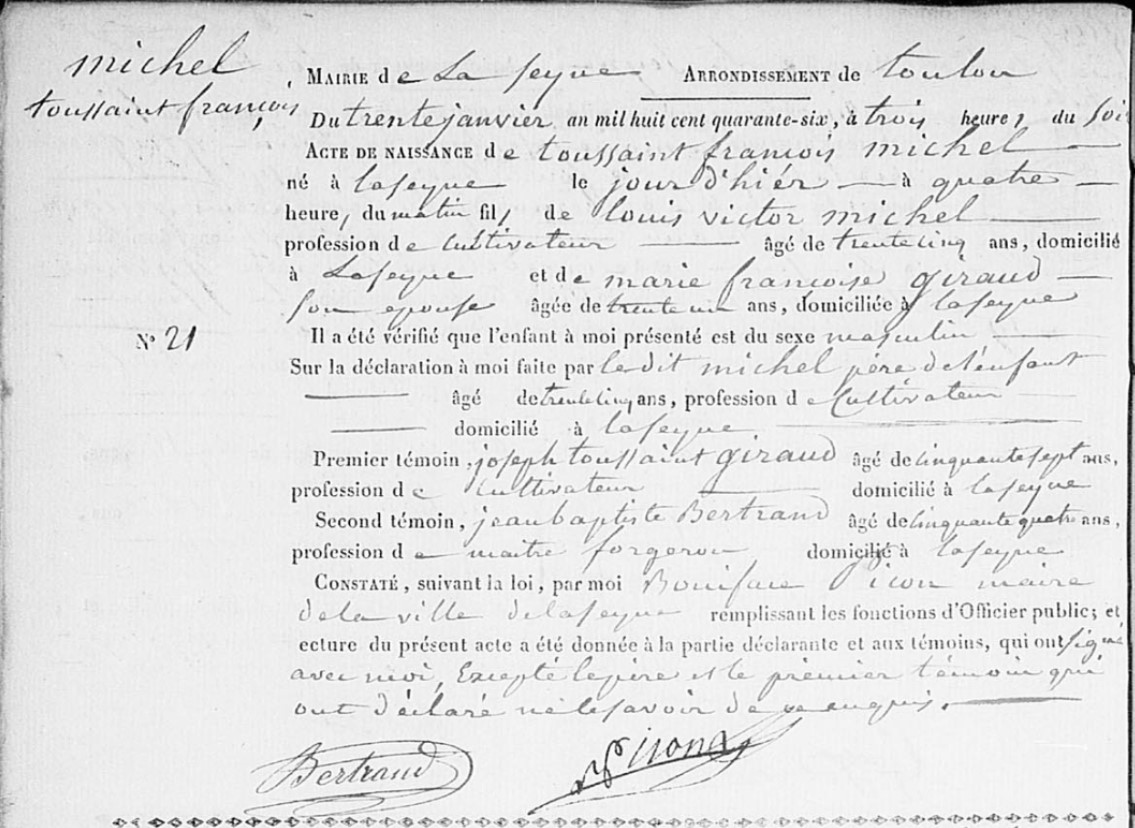 michel
toussaint françois
MAIRIE de La seyne ARRONDISSEMENT de toulon
Du trente janvier an mil huit cent quarante-six, à trois heures du Soir
ACTE DE NAISSANCE de toussaint françois michel
né à laseyne le jour d'hiér à quatre
heures du matin fils de louis victor michel
profession de Cultivateur âgé de trente cinq ans, domicilié
à Laseyne et de marie françoise giraud
son epouse âgée de trente un ans, domiciliée à laseyne
N° 21
Il a été vérifié que l'enfant à moi présenté est du sexe masculin
Sur la déclaration à moi faite par le dit michel père de l'enfant
âgé de trente cinq ans, profession de Cultivateur
domicilié à laseyne
Premier témoin, joseph toussaint giraud âgé de cinquante sept ans,
profession de Cultivateur domicilié à laseyne
Second témoin, jean baptiste Bertrand âgé de cinquante quatre ans,
profession de maitre forgeron domicilié à laseyne
CONSTATÉ, suivant la loi, par moi Boniface maire
de la ville de laseyne remplissant les fonctions d'Officier public; et
ecture du présent acte a été donnée à la partie déclarante et aux témoins, qui ont signé
avec moi, Excepté le père et le premier témoin qui
ont déclaré ne le savoir de ce enquis.
Bertrand